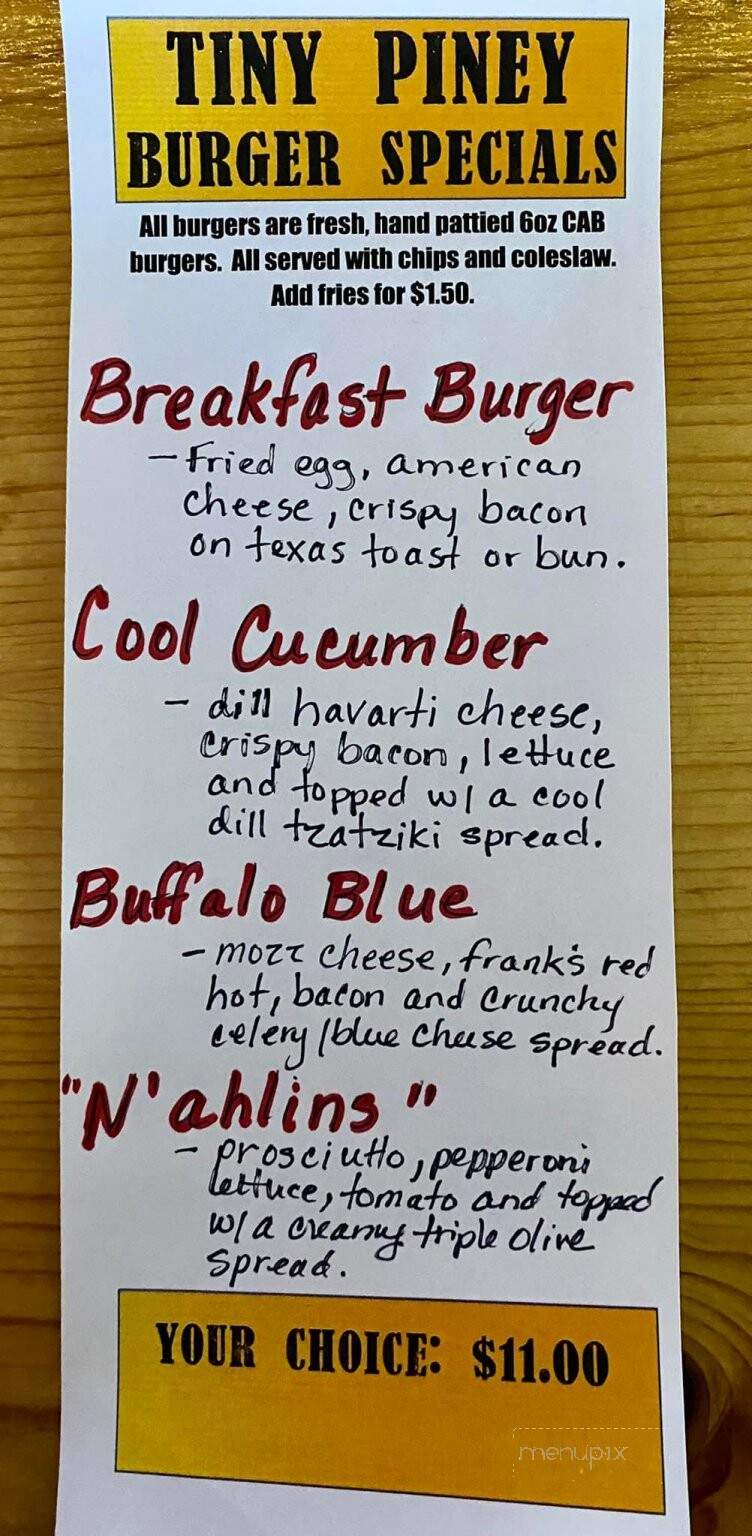 TINY PINEY
BURGER SPECIALS
All burgers are fresh, hand pattied 6oz CAB
burgers. All served with chips and coleslaw.
Add fries for $1.50.
Breakfast Burger
- Fried egg, american
cheese, crispy bacon
on texas toast or bun.
Cool Cucumber
- dill havarti cheese,
crispy bacon, lettuce
and topped w/ a cool
dill tzatziki spread.
Buffalo Blue
- mozz cheese, frank's red
hot, bacon and crunchy
celery/blue cheese spread.
"N'ahlins"
- prosciutto, pepperoni
lettuce, tomato and topped
w/a creamy triple olive
spread.
YOUR CHOICE: $11.00
menupix